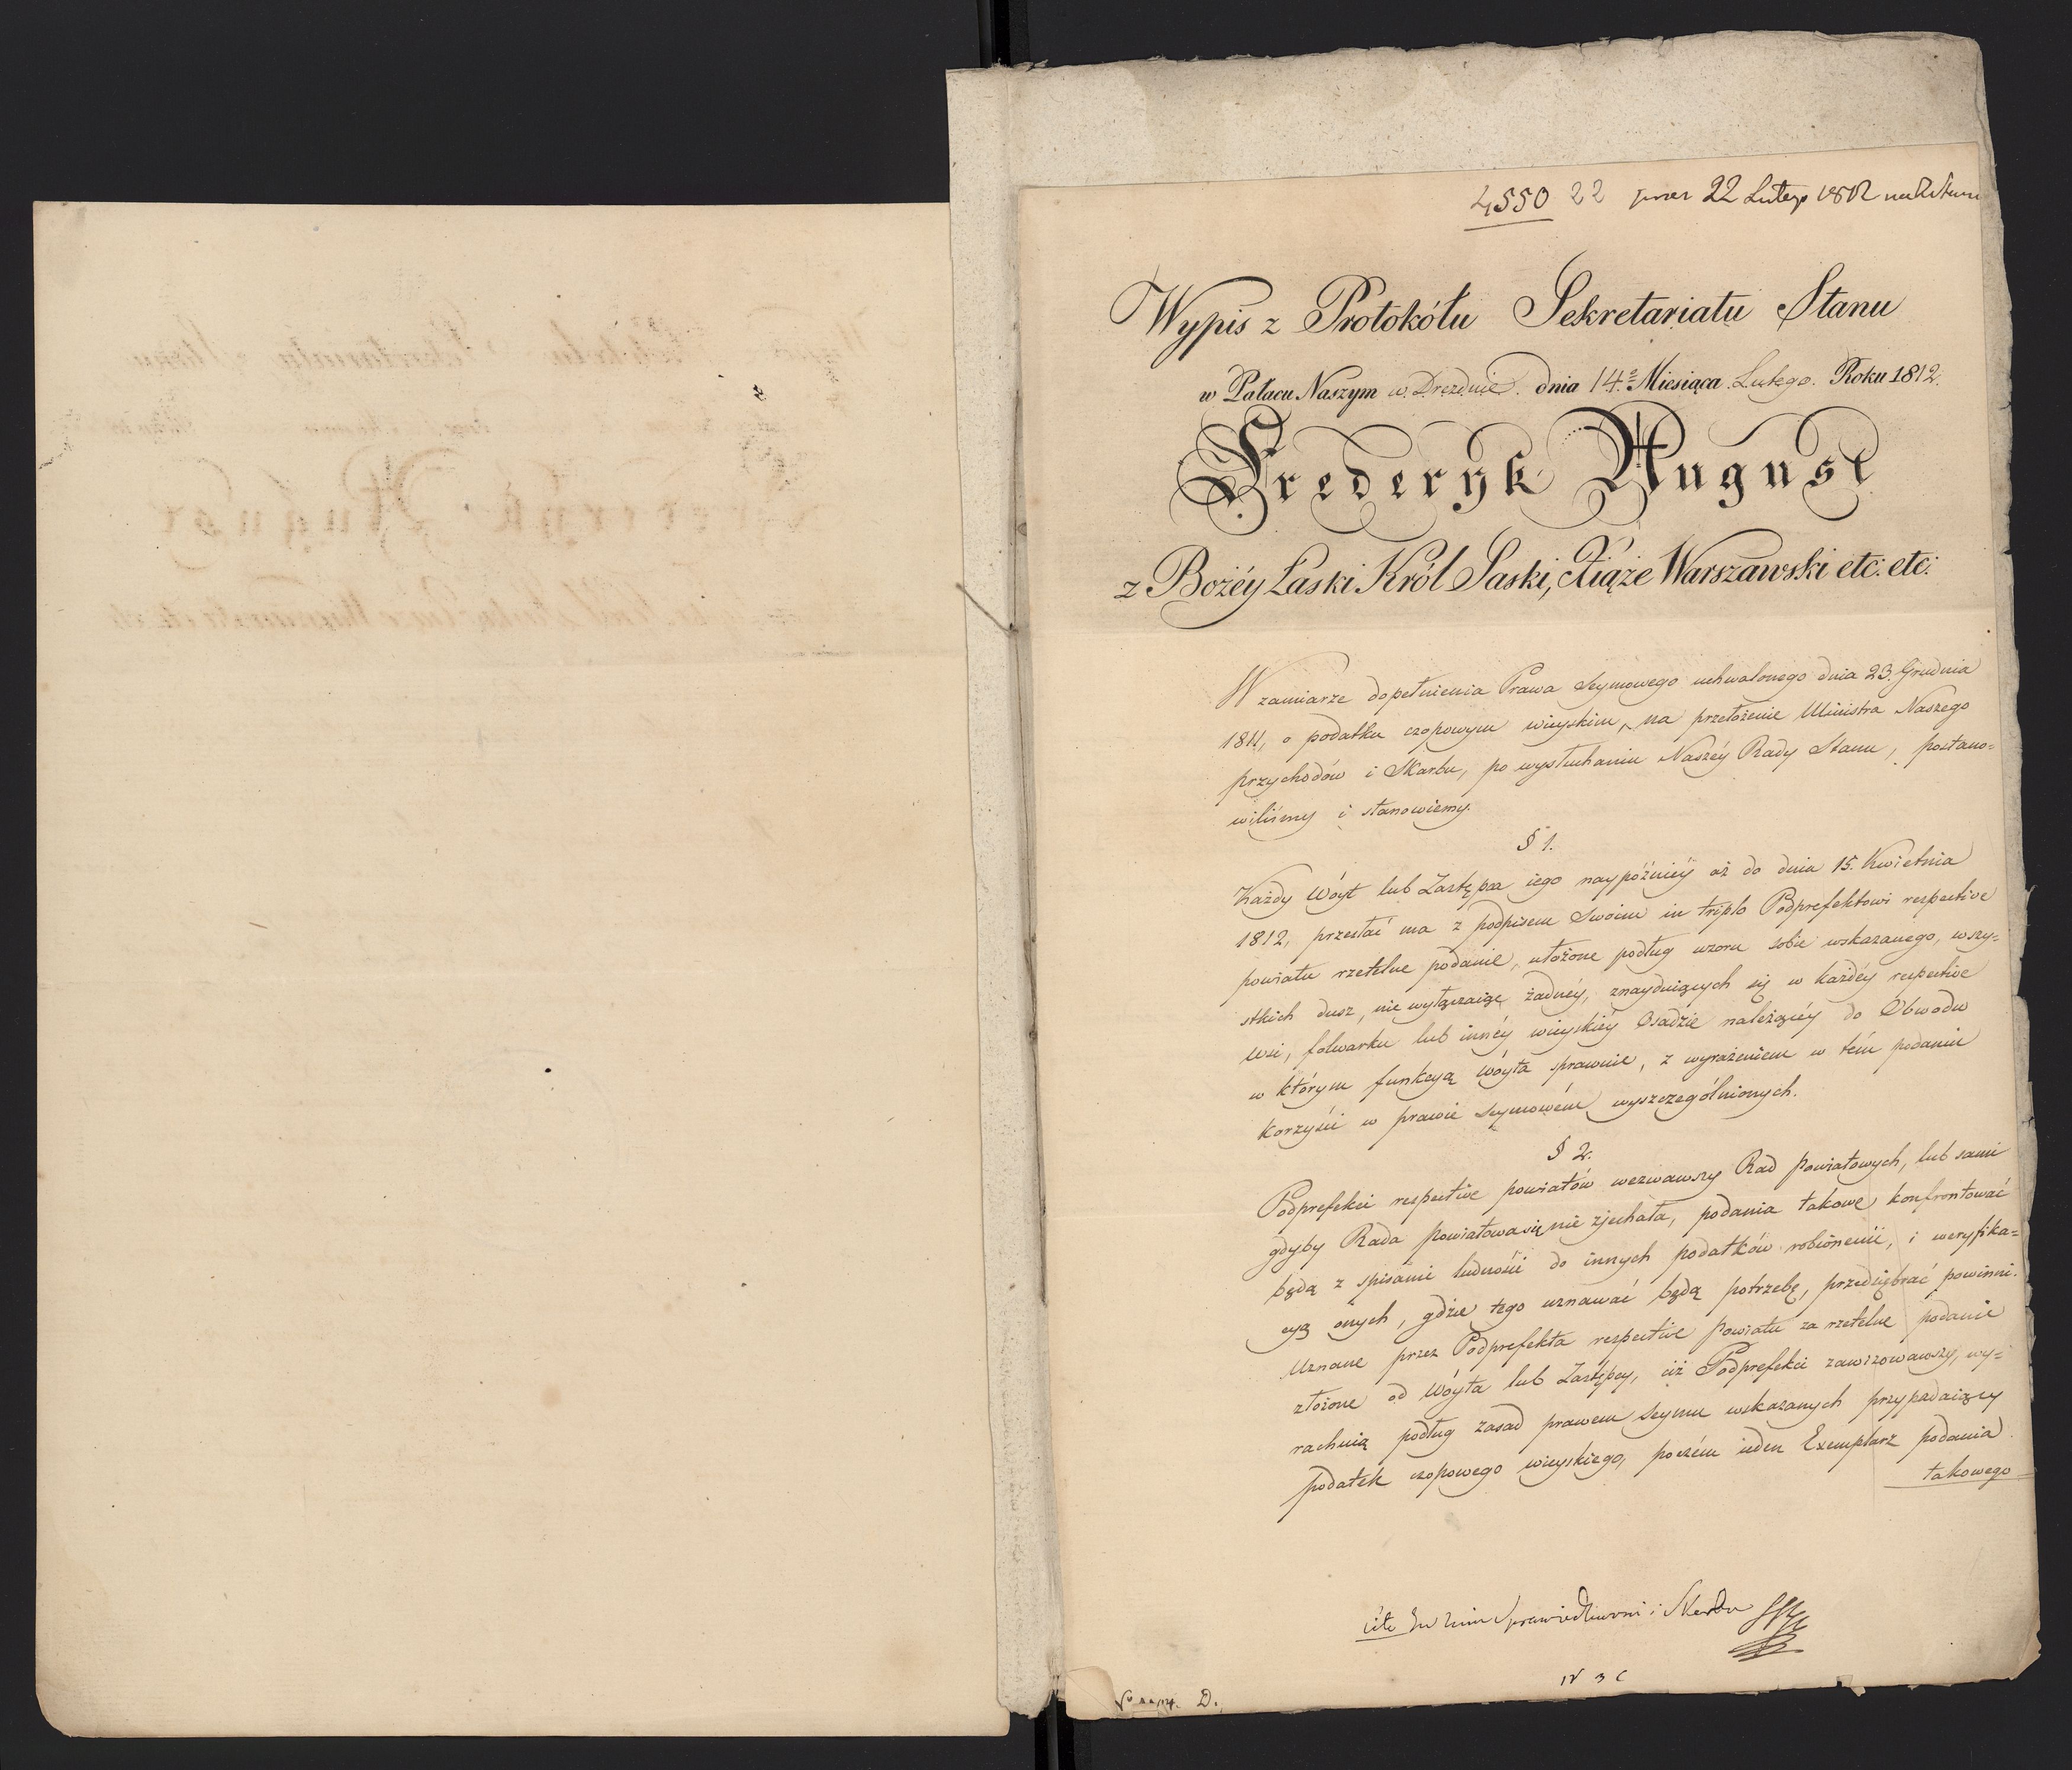 4550 22 22 Lutego 1812
Wypis z Protokółu Sekretariatu Stanu
w Pałacu Naszym w Dreznie. dnia 14. Miesiąca Lutego. Roku 1812.
Frederyk August
z Bożéy Łaski Król Saski, Xiąże Warszawski etc: etc:
W zamiarze dopełnienia Prawa Seymowego uchwalonego dnia 23. Grudnia
1811, o podatku czopowym wieyskim, na przełożenie Ministra Naszego
przychodów i Skarbu, po wysłuchaniu Naszéy Rady Stanu, postano=
wiliśmy i stanowiemy.
§ 1.
Każdy Wóyt lub Zastępca iego naypóźniéy aż do dnia 15. Kwietnia
1812, przesłać ma z podpisem Swoim in triplo Podprefektowi respective
powiatu rzetelne podanie, ułożone podług wzoru sobie wskazanego, wszy=
stkich dusz, nie wyłączaiąc żadnéy, znayduiących się w każdéy respective
wsi, folwarku lub innéy wieyskiéy Osadzie należącéy do Obwodu
w którym funkcyą Wóyta sprawuie, z wyrażeniem w tém podaniu
korzyści w prawie seymowém wyszczególnionych.
§ 2.
Podprefekci respective powiatów wezwawszy Rad Powiatowych, lub sami
gdyby Rada Powiatowa się nie zjechała, podania takowe konfrontować
będą z spisami ludności do innych podatków robionemi, i weryfika=
cyą onych, gdzie tego uznawać będą potrzebę, przedsiębrać powinni.
Uznane przez Podprefekta respective Powiatu za rzetelne podanie
złożone od Wóyta lub Zastępcy, ciż Podprefekci zawizowawszy, wy=
rachuią podług zasad prawem Seymu wskazanych przypadaiący
podatek czopowego wieyskiego, poczém ieden Exemplarz podania
takowego
Sprawiedliwości i Skarbu
D.